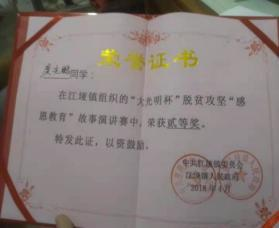 荣誉证书
同学：
在江垭镇组织的“大光明杯”脱贫攻坚“感
恩教育”故事演讲赛中，荣获贰等奖。
特发此证，以资鼓励。
中共江垭镇委员会
江垭镇人民政府
2018年4月